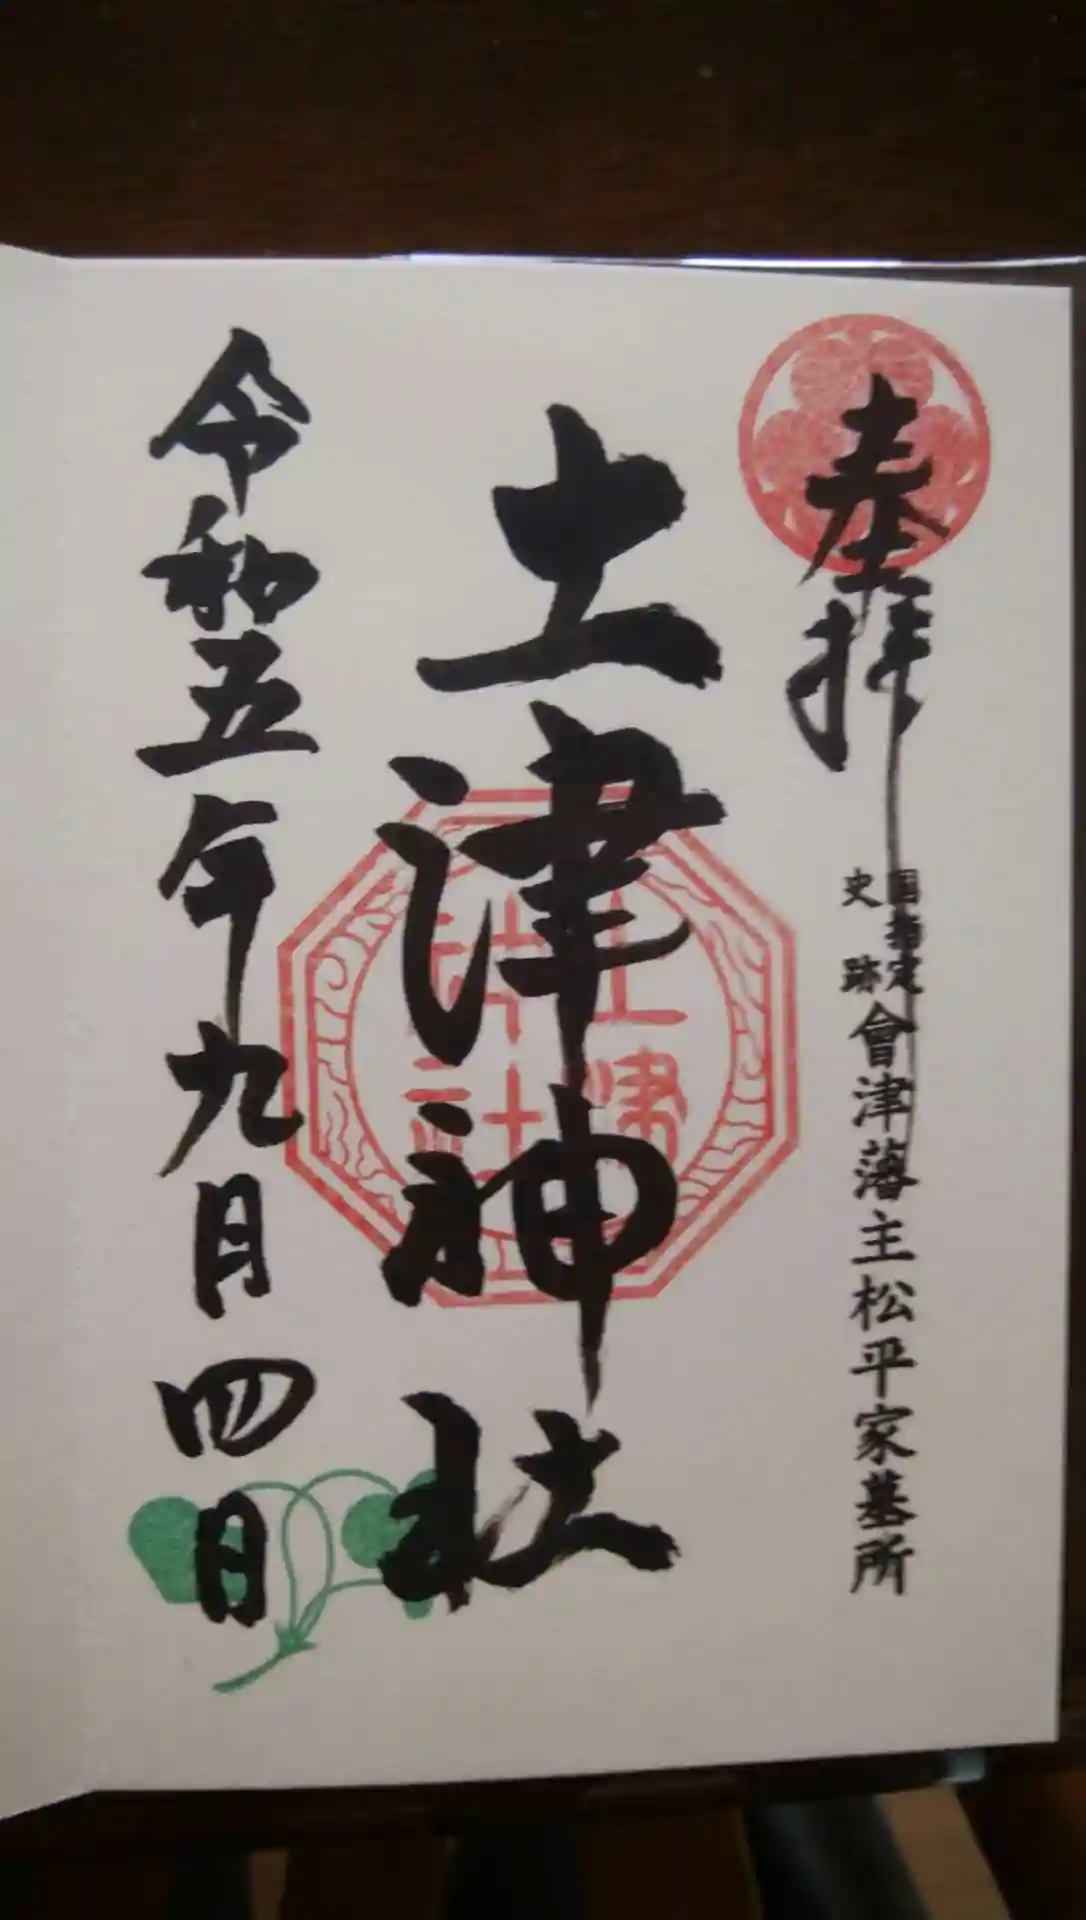 奉拝
国指定
史跡
會津藩主松平家墓所
土津神社
土津
神社
令和五年九月四日